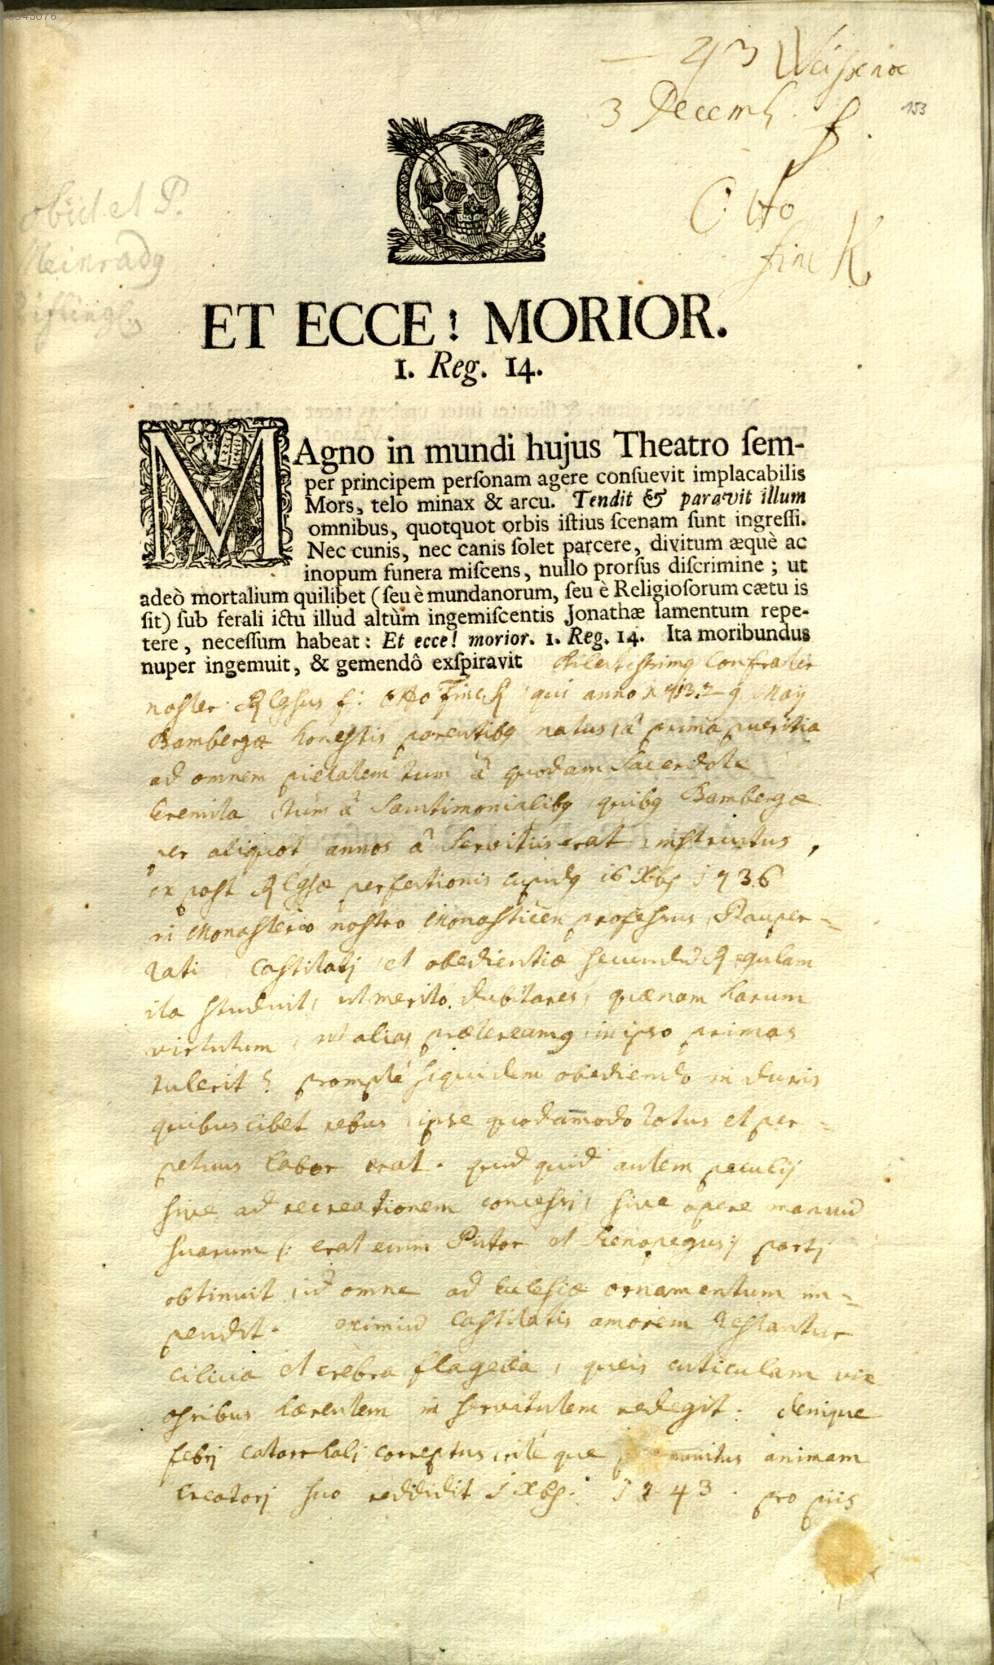 43 Weissenoe
153
3 Decemb.
f.
Otto
finck
obiit et P.
Meinrady
ET ECCE! MORIOR.
1. Reg. 14.
MAgno in mundi hujus Theatro ſem-
per principem perſonam agere conſuevit implacabilis
Mors, telo minax & arcu. Tendit & paravit illum
omnibus, quotquot orbis iſtius ſcenam ſunt ingreſſi.
Nec cunis, nec canis ſolet parcere, divitum æquè ac
inopum funera miſcens, nullo prorſus diſcrimine; ut
adeò mortalium quilibet (ſeu è mundanorum, ſeu è Religioſorum cætu is
ſit) ſub ferali ictu illud altùm ingemiſcentis Jonathæ lamentum repe-
tere, neceſſum habeat: Et ecce! morior. 1. Reg. 14. Ita moribundus
nuper ingemuit, & gemendô exſpiravit Confrater
noster Rlgsus f: Otto Finck qui anno 9 May
Bambergæ honestis parentibq natus, â primâ pueritia
ad omnem pietatem tum â quodam Sacerdote
Eremita, tum â Sanctimonialibq, quibq Bambergæ
per aliquot annos â Servitiis erat, instructus,
post Rlgsæ perfectionis cupidq 16 Xbs 1736
in Monasterio nostro Monasticen professus Pauper=
tati, Castitatj, et obedientiæ secundũ Regulam
ita studuit, ut meritò dubitares, quænam harum
virtutum, ut alias prætereamq, in ipso primas
tulerit? promptè siquidem obediendo in duris
quibuslibet rebus, ipse quodam̄odo totus et per=
petuus labor erat. quid quid autem peculij
sive ad recreationem concessi, sive opere manuũ
suarum /: erat enim Pictor et partj
obtinuit, id omne ad Ecclesiæ ornamentum im=
pendit. eximiũ Castitatis amorem testantur
cilicia et crebra flagella, queis cuticulam vix
ossibus hærentem in servitutem redegit. denique
febrj catarrhalj correptus, ritè que munitus animam
Creatorj suo reddidit 1 Xbs. 1743. pro piis